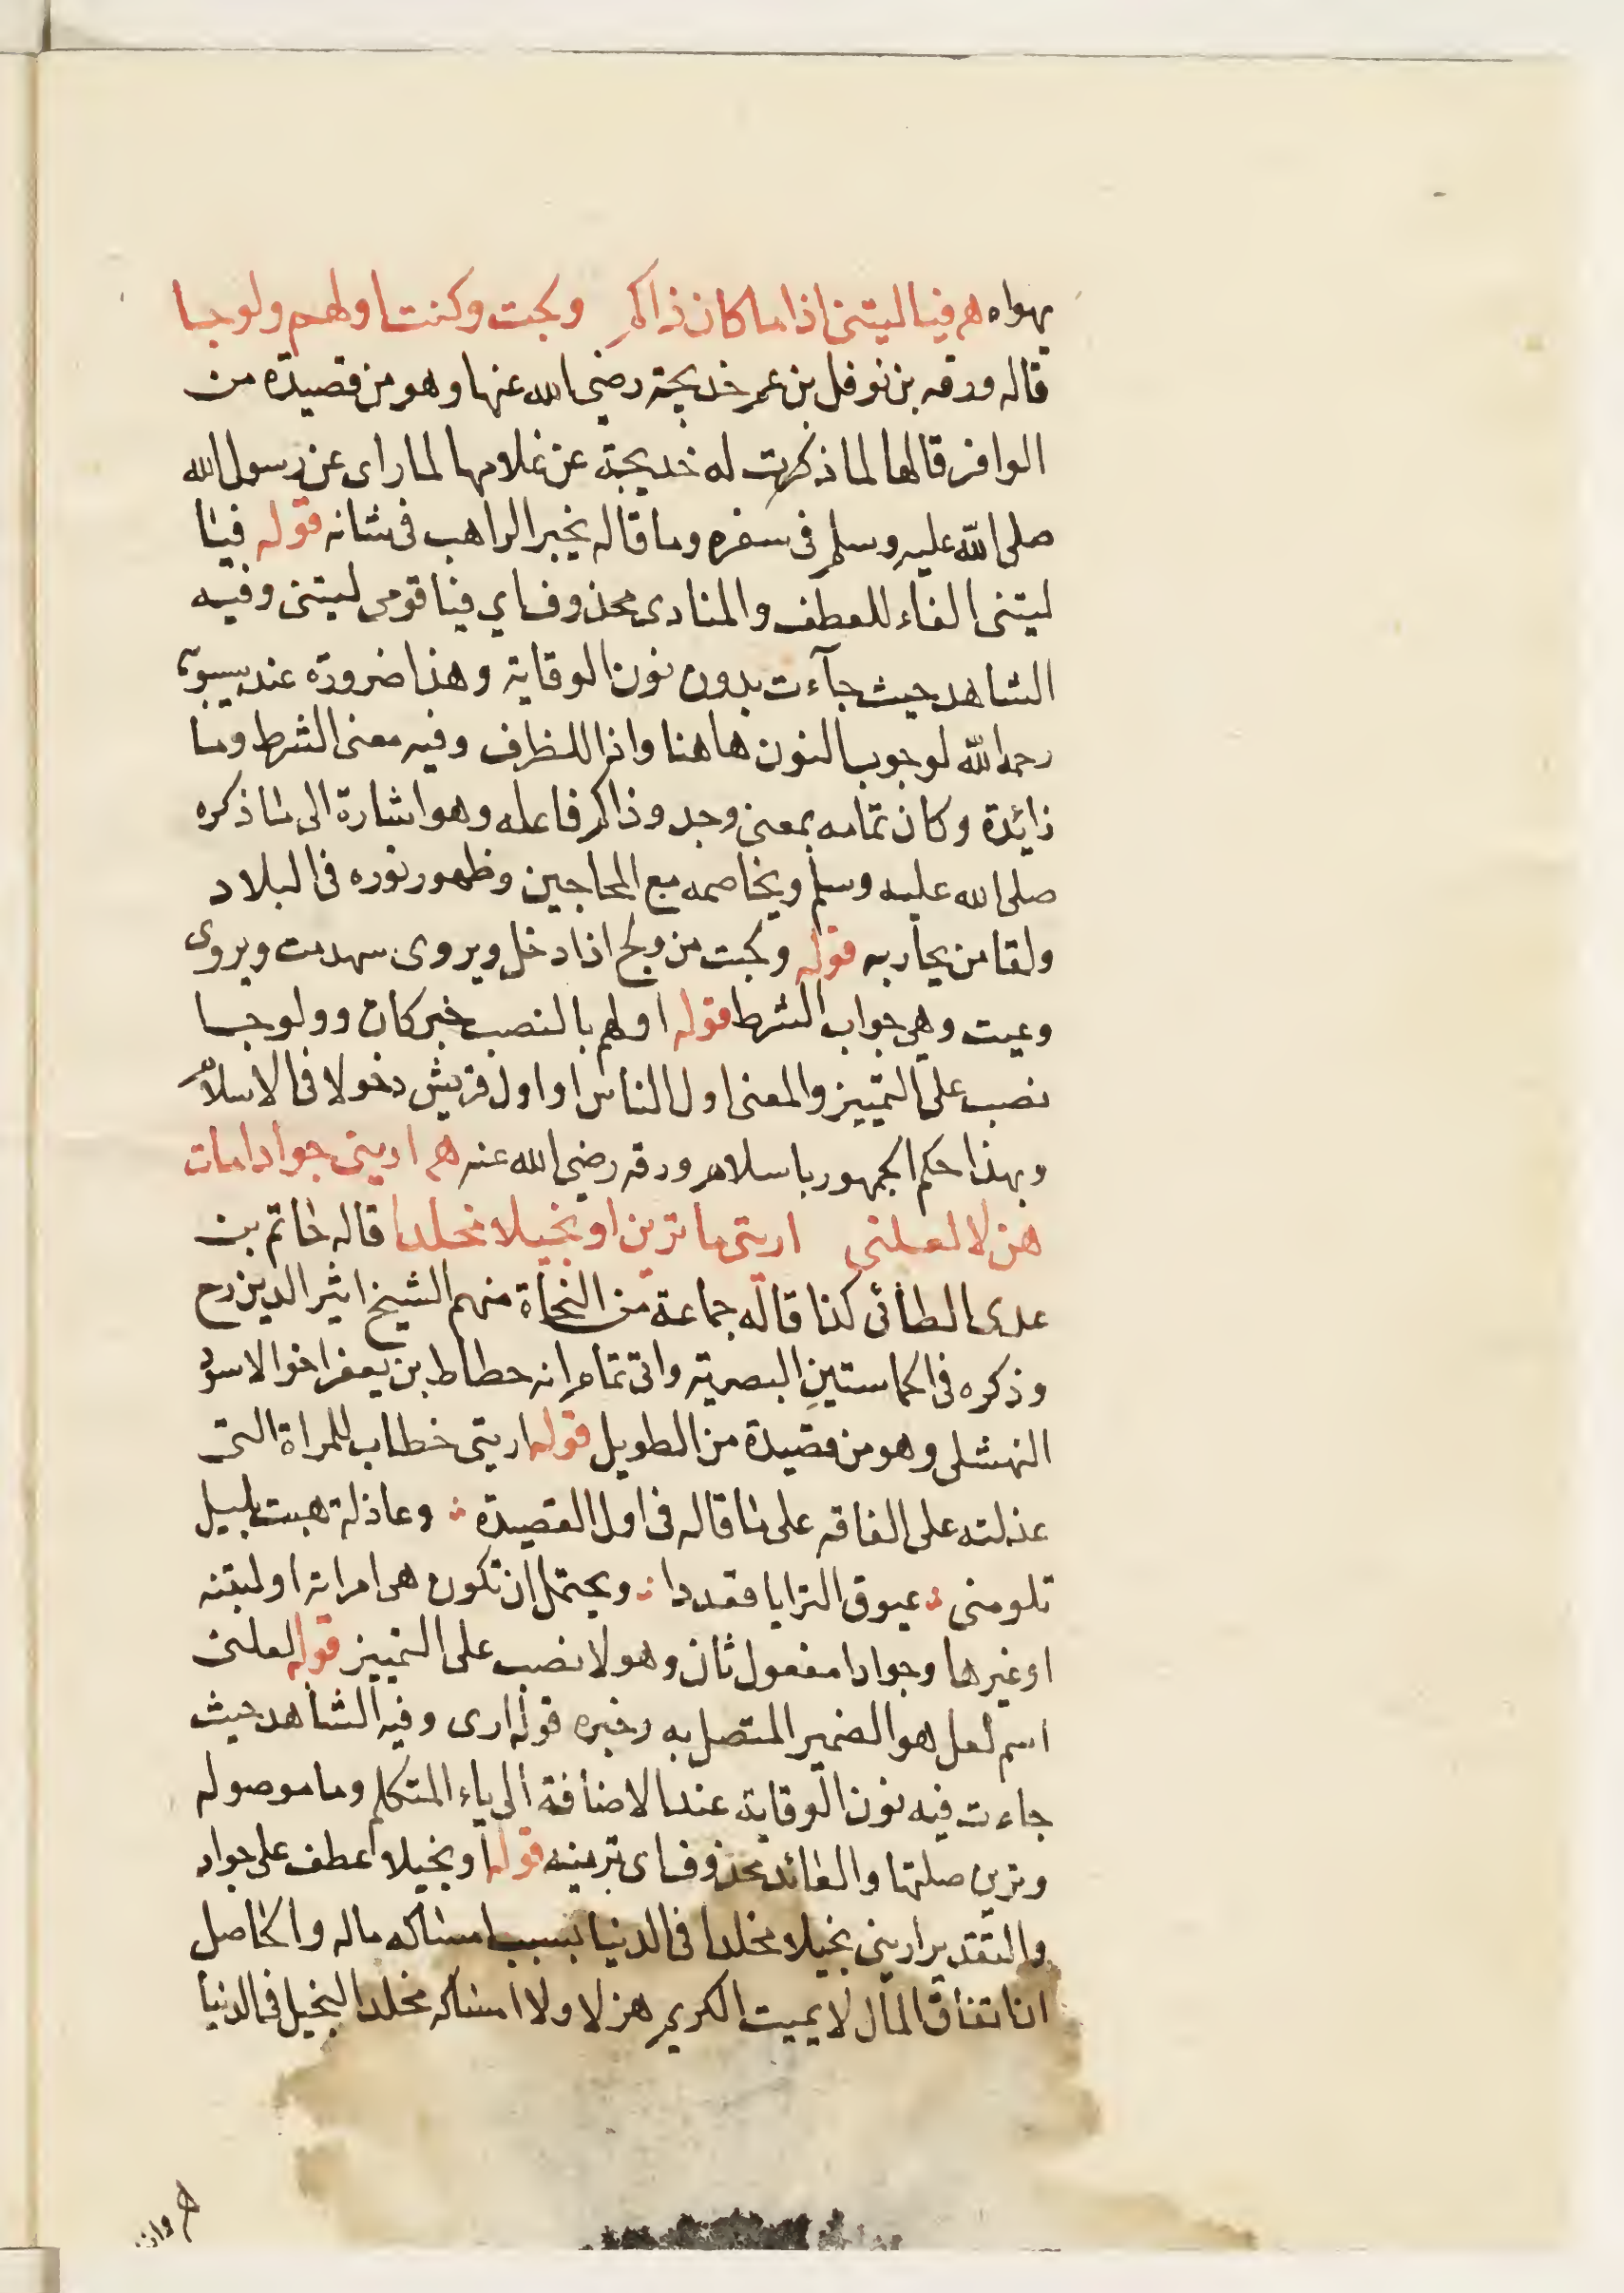 يهواه هم فيا ليتنى اذا ما كان ذاكم ولجت وكنت اولهم ولوجا
قاله ورقه بن نوفل بن عم خديجة رضي الله عنها وهو من قصيدة من
الوافر قالها لما ذكرت له خديجة عن غلامها لما راى عن رسول الله
صلى الله عليه وسلم فى سفره وما قاله بخبر الراهب فى شانه قوله فيا
ليتنى الفاء للعطف والمنادى محذوف اي فيا قومى ليتنى وفيه
الشاهد حيث جآءت بدون نون الوقاية وهذا ضرورة عند سيبويه
رحمه الله لوجوب النون هاهنا واذا للظرف وفيه معنى الشرط وما
زائدة وكان تمامه بمعنى وجد وذاكم فاعله وهو اشارة الى ما ذكره
صلى الله عليه وسلم ويخاصمه مع المحاجين وظهور نوره فى البلاد
ولقا من يحاربه قوله ولجت من ولج اذا دخل ويروى سهدت ويروى
وعيت وهى جواب الشرط قوله اولهم بالنصب خبر كان وولوجا
نصب على التمييز والمعنى اول الناس او اول قريش دخولا فى الاسلام
وبهذا حكم الجمهور باسلام ورقه رضي الله عنه هم اريني جوادا مات
هزلا لعلنى اري ما ترين او بخيلا مخلدا قاله حاتم بن
عدى الطائى كذا قاله جماعة من النحاة منهم الشيخ اثير الدين رح
وذكره فى الحماستين البصرية واتى تمام انه حطاط بن يعفر اخو الاسود
النهشلى وهو من قصيدة من الطويل قوله اريني خطاب للمراة التى
عذلته على انفاقه على ما قاله فى اول القصيدة وعاذلة هبت بليل
تلومنى عيوق الثرايا فعددا ويحتمل ان تكون هى امراته او لبنته
او غيرها وجوادا مفعول ثان وهولا نصب على التمييز قوله لعلنى
اسم لعل هو الضمير المتصل به وخبره قوله ارى وفيه الشاهد حيث
جاءت فيه نون الوقاية عند الاضافة الى ياء المتكلم وما موصوله
وترين صلتها والعائد محذوف اى ترينه قوله او بخيلا عطف على جواد
والتقدير اريني بخيلا مخلدا فى الدنيا بسبب امساكه ماله والحاصل
ان انفاق المال لا يميت الكريم هزلا ولا امساكه مخلد البخيل فى الدنيا
هم وانى